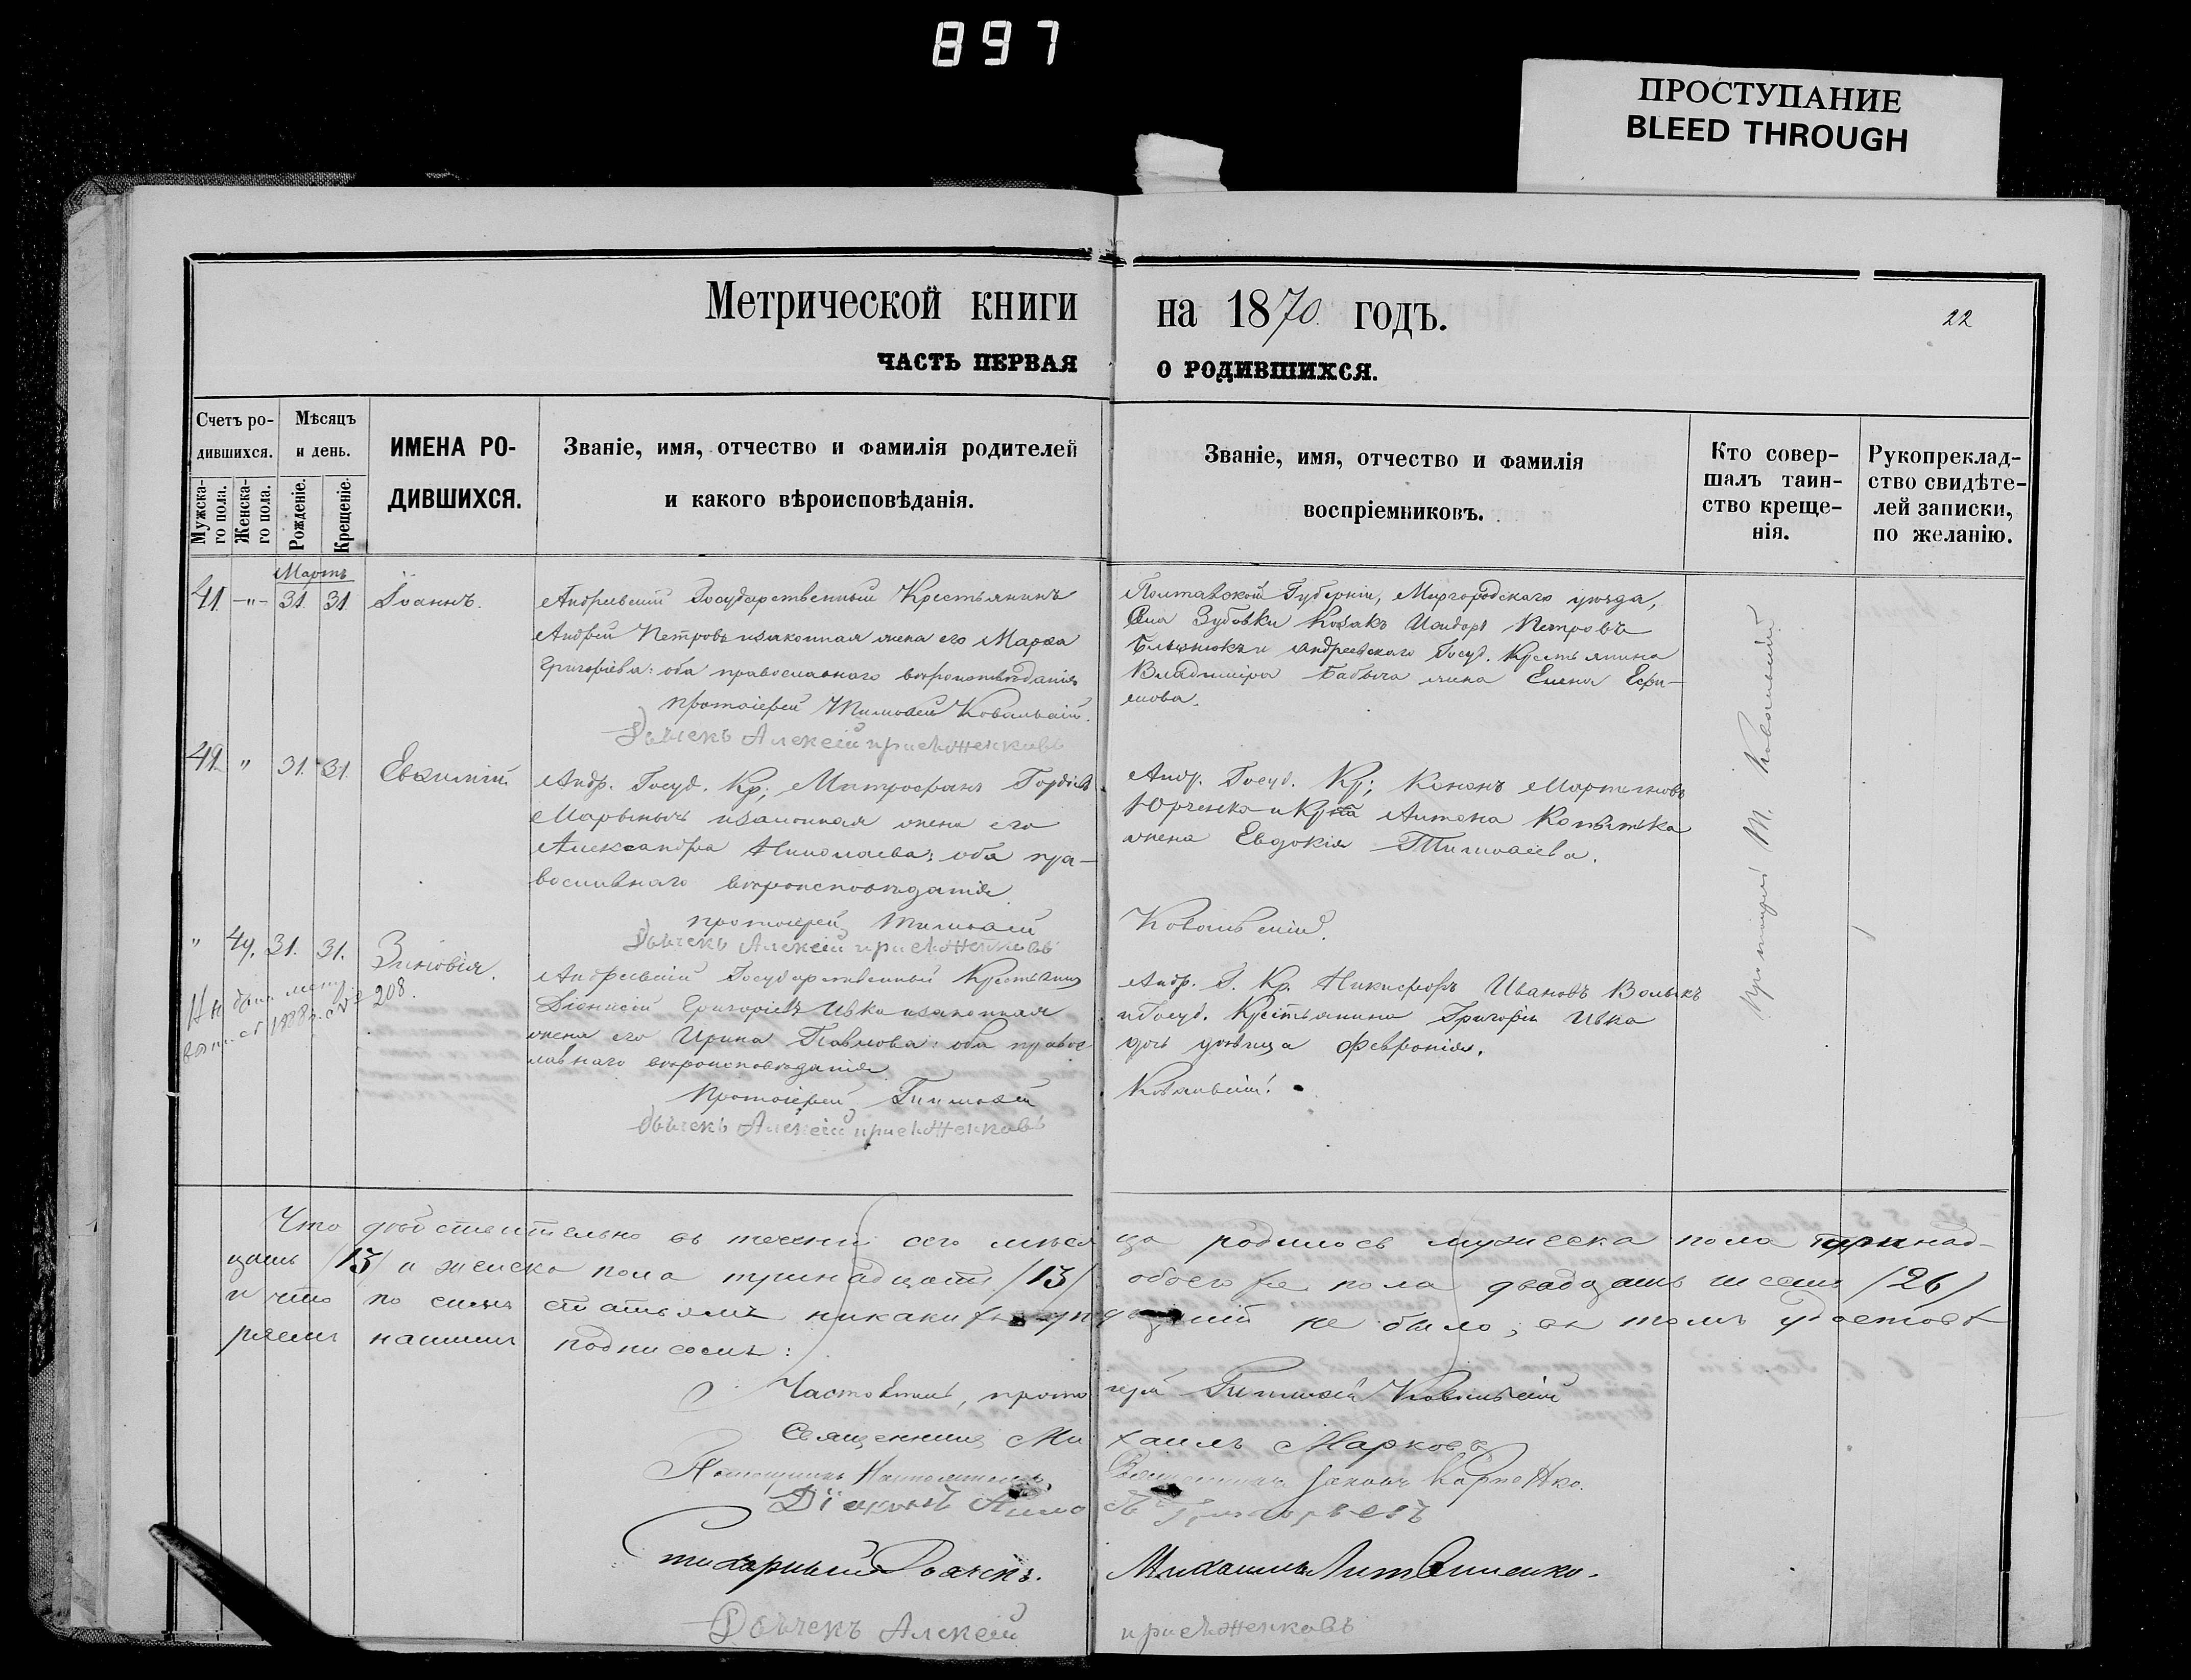 897
ПРОСТУПАНИЕ
BLEED THROUGH
Метрической книги на 1870 годъ.
22
ЧАСТЬ ПЕРВАЯ О РОДИВШИХСЯ.
Счетъ ро-
дившихся.
Мужска-
го пола.
Женска-
го пола.
Мѣсяцъ
и день.
Рожденіе.
Крещеніе.
ИМЕНА РО-
ДИВШИХСЯ.
Званіе, имя, отчество и фамилія родителей
и какого вѣроисповѣданія.
Званіе, имя, отчество и фамилія
воспріемниковъ.
Кто совер-
шалъ таин-
ство креще-
нія.
Рукоприклад-
ство свидѣте-
лей записки,
по желанію.
Мартъ
41 -"- 31. 31. Іоаннъ.
Андреевскій Государственный Крестьянинъ
Андрей Петровъ и законная жена его Марѳа
Григоріева: оба православнаго вѣроисповѣданія
протоіерей Тимоѳей Ковалевскій.
Дьячекъ Алексій
Полтавской Губерніи, Миргородскаго уѣзда,
Села Зубовки Козакъ Исидоръ Петровъ
и Андреевскаго Госуд. Крестьянина
Владиміра Бабича жена Елена Ефи-
мова.
" 31. 31. Евѳимій
Андр. Госуд. Кр; Митрофанъ
и законная жена его
Александра Николаева; оба пра-
вославнаго вѣроисповѣданія
протоіерей Тимоѳей Ковалевскій.
Дьячекъ Алексій
Андр. Госуд. Кр; Кононъ Мартиновъ
Юрченко и Кр-на Антона
жена Евдокія Тимоѳеева.
" 31. 31. Зиновія.
208.
Андреевскій Государственный Крестьянинъ
Діонисій Григоріевъ Ивко и законная
жена его Ирина Павлова: оба правос
лавнаго вѣроисповѣданія
Протоіерей Тимоѳей Ковалевскій.
Дьячекъ Алексій
Андр. Г. Кр. Никифоръ Ивановъ Волыкъ
и Госуд. Крестьянина Григорія Ивка
дочь дѣвица Февронія.
Протоіерей Т. Ковалевскій
Что дѣйствительно въ теченіи сего мѣсяца родилось мужеска пола тринад-
цать /13/ и женска пола тринадцать /13/ обоего же пола двадцать шесть /26/
и что по симъ статьямъ никакихъ не было; въ томъ удостовѣ
ряемъ нашимъ подписомъ:
Настоятель, протоіерей Тимоѳей Ковалевскій
Священникъ Михаилъ Марковъ
Помощникъ Настоятеля Священникъ Карпенко.
Діаконъ Григорьевъ
Стихарный Дьячекъ. Михаилъ Литвиненко.
Дьячекъ Алексій